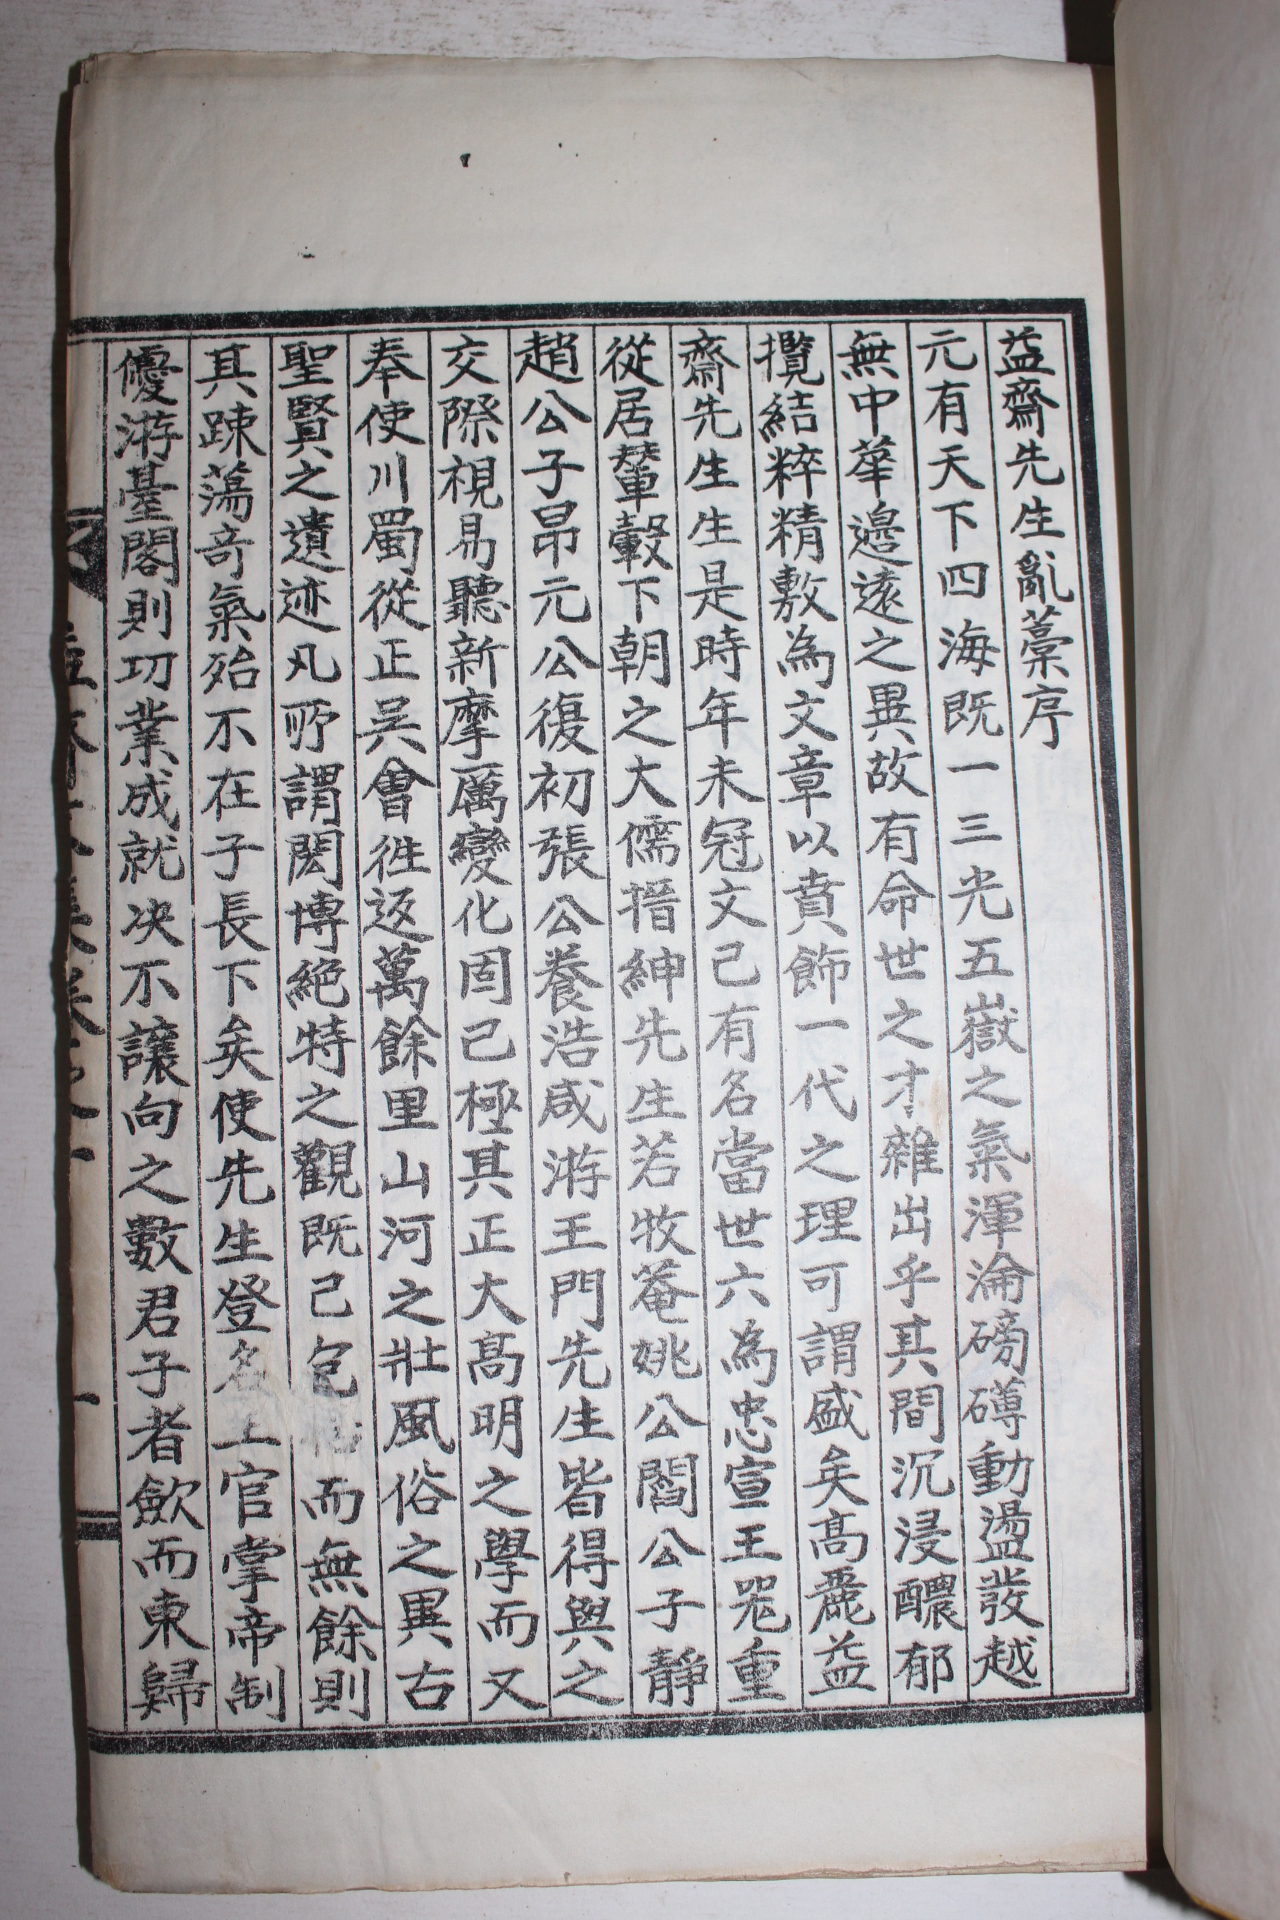 益齋先生亂藁序
元有天下四海既一三光五嶽之氣渾淪磅礴動盪發越
無中華邊遠之異故有命世之才雜出乎其間沉浸醲郁
攬結粹精敷為文章以賁飾一代之理可謂盛矣高麗益
齋先生生是時年未冠文已有名當世六為忠宣王器重
從居輦轂下朝之大儒搢紳先生若牧菴姚公閻公子靜
趙公子昂元公復初張公養浩咸游王門先生皆得與之
交際視易聽新摩厲變化固已極其正大高明之學而又
奉使川蜀從王吳會往返萬餘里山河之壯風俗之異古
聖賢之遺迹凡所謂閎博絕特之觀既已包括而無餘則
其踈蕩奇氣殆不在子長下矣使先生登名王官掌帝制
優游臺閣則功業成就决不讓向之數君子者斂而東歸